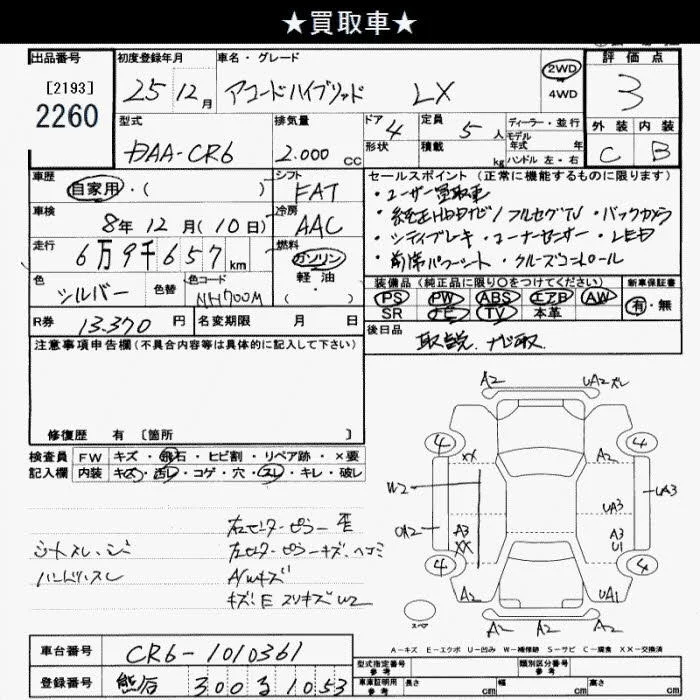 ★買取車★
出品番号
[2193]
2260
初度登録年月
25年12月
車名・グレード
アコードハイブリッド LX
2WD
4WD
評価点
3
外装 内装
C B
型式
DAA-CR6
排気量
2.000 CC
ドア 4
形状
定員 5人
積載 kg
ディーラー・並行
モデル
年式 年
ハンドル 左・右
車歴
自家用・( )
シフト
FAT
車検
8年12月(10日)
冷房
AAC
走行
6万9千657km
燃料
ガソリン
軽油
・( )
色
シルバー
色替
色コード
NH700M
R券 13.370円
名変期限 月 日
セールスポイント (正常に機能するものに限ります)
・ユーザー買取車
・純正HDDナビ/フルセグTV・バックカメラ
・シティブレーキ・コーナーセンサー・LED
・前席パワーシート・クルーズコントロール
装備品(純正品に限り○をつけてください)
PS PW ABS エアB AW
SR ナビ TV 本革
新車保証書
有・無
後日品
取説 ナビ取
注意事項申告欄(不具合内容等は具体的に記入して下さい)
修復歴 有 〔箇所 〕
検査員
記入欄
FW キズ・飛石・ヒビ割・リペア跡・×要
内装 キズ・汚レ・コゲ・穴・スレ・キレ・破レ
シートスレ・シミ
ハンドルスレ
右センターピラー E
左センターピラーキズ、ヘコミ
A/Wキズ
キズ E スリキズ W2
A2 UA2ズレ
4 4
XX A2
W2
UA3 UA3
UA2
A3 A3
XX U1
4 4
A2 UA1
スペア
A2 A2
A－キズ E－エクボ U－凹み W－補修跡 S－サビ C－腐食 XX－交換済
車台番号 CR6-1010361
登録番号 熊谷 300 る 1053
型式指定番号
参考
類別区分番号
参考
車庫証明用
参考
長さ cm 幅 cm 高さ cm